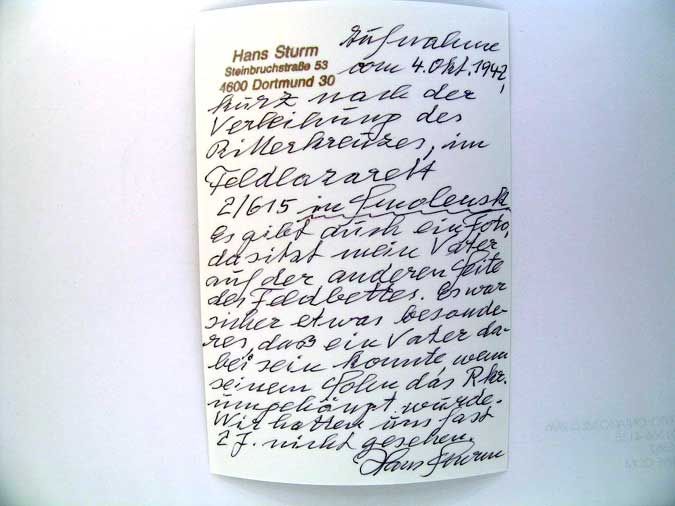 Hans Sturm
Steinbruchstraße 53
4600 Dortmund 30
Aufnahme
vom 4. Okt. 1942,
kurz nach der
Verleihung des
Ritterkreuzes, im
Feldlazarett
2/615 in Smolensk
Es gibt auch ein Foto,
da sitzt mein Vater
auf der anderen Seite
des Feldbettes. Es war
sicher etwas besonde-
res, daß ein Vater da-
bei sein konnte wenn
seinem Sohn das Rkr.
umgehängt wurde.
Wir hatten uns fast
2 J. nicht gesehen.
Hans Sturm